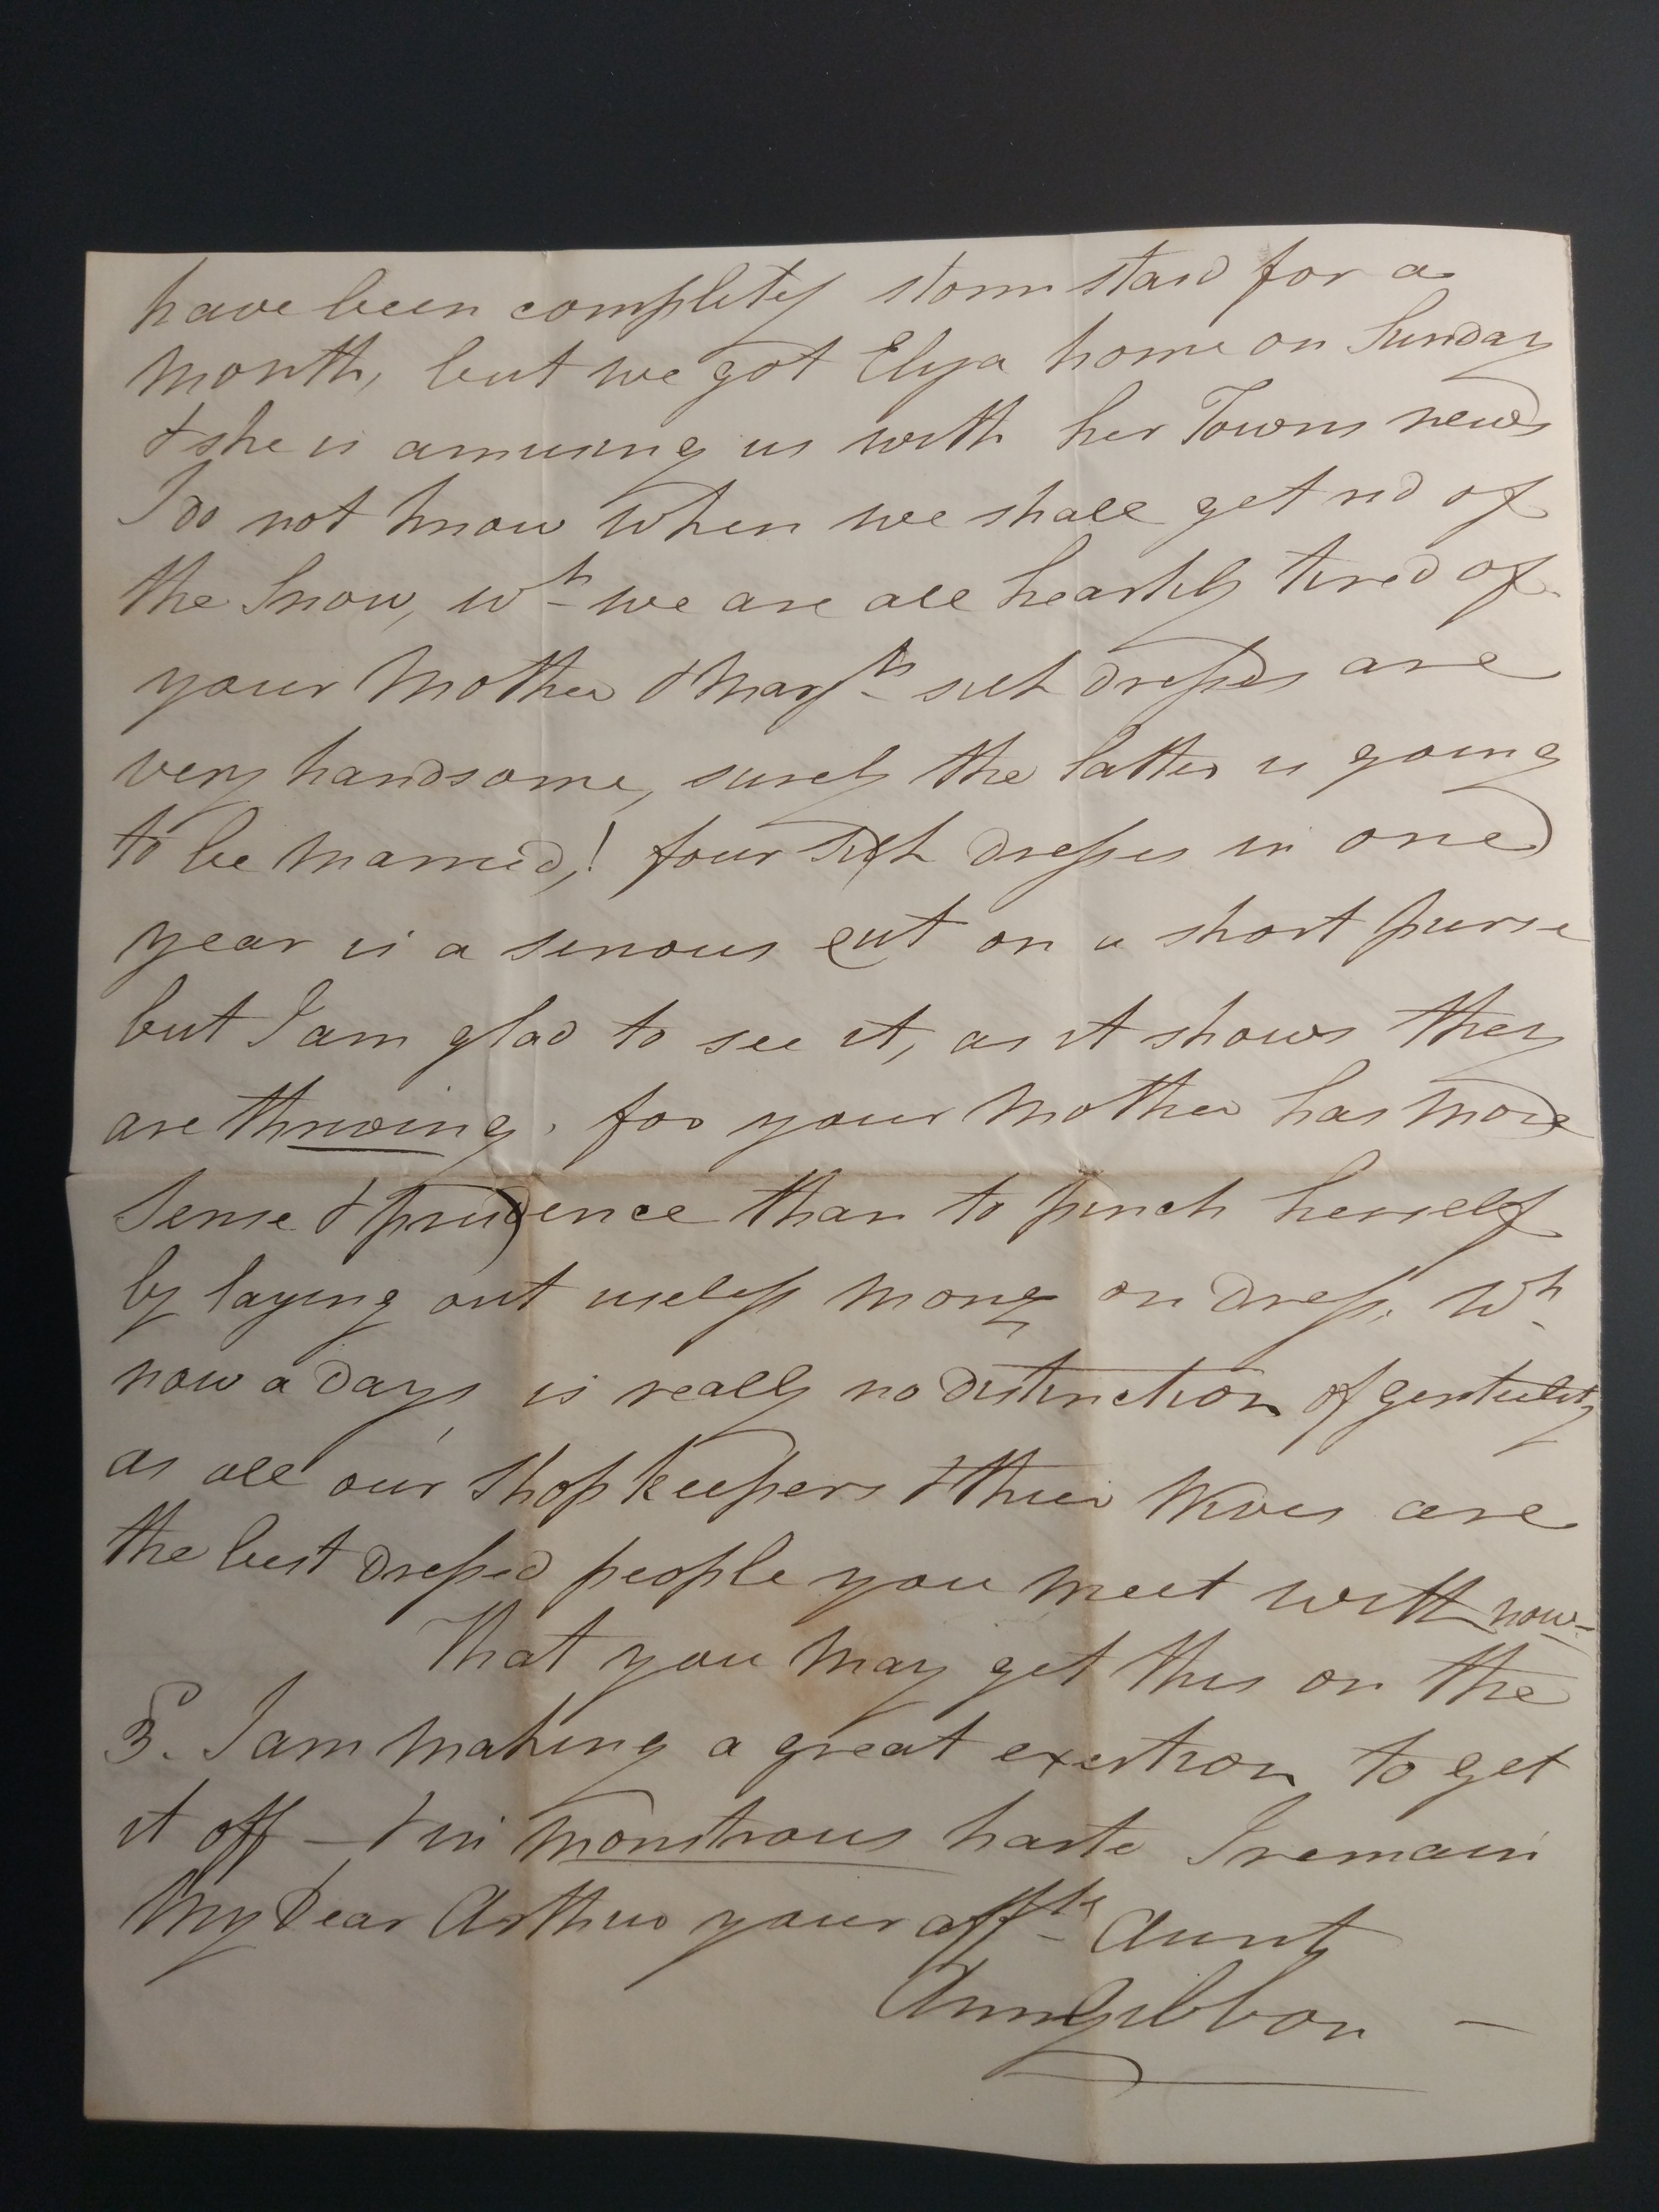 have been completely storm staid for a
month, but we got Eliza home on Sunday
& she is amusing us with her Towns news
I do not know when we shall get rid of
the Snow, wh we are all heartily tired of
your Mother & Marys silk dresses are
very handsome, surely the latter is going
to be married,! four silk dresses in one
year is a serious cut on a short purse
but I am glad to see it, as it shows they
are thriving. for your Mother has more
Sense & prudence than to pinch herself
by laying out useless money on dress, wh
now a days is really no distinction of gentility
as all our Shopkeepers & their Wives are
the best dressed people you meet with now—
That you may get this on the
3. I am making a great exertion to get
it off — & in monstrous haste I remain
My Dear Arthur your afft Aunt
Ann Gibbon —